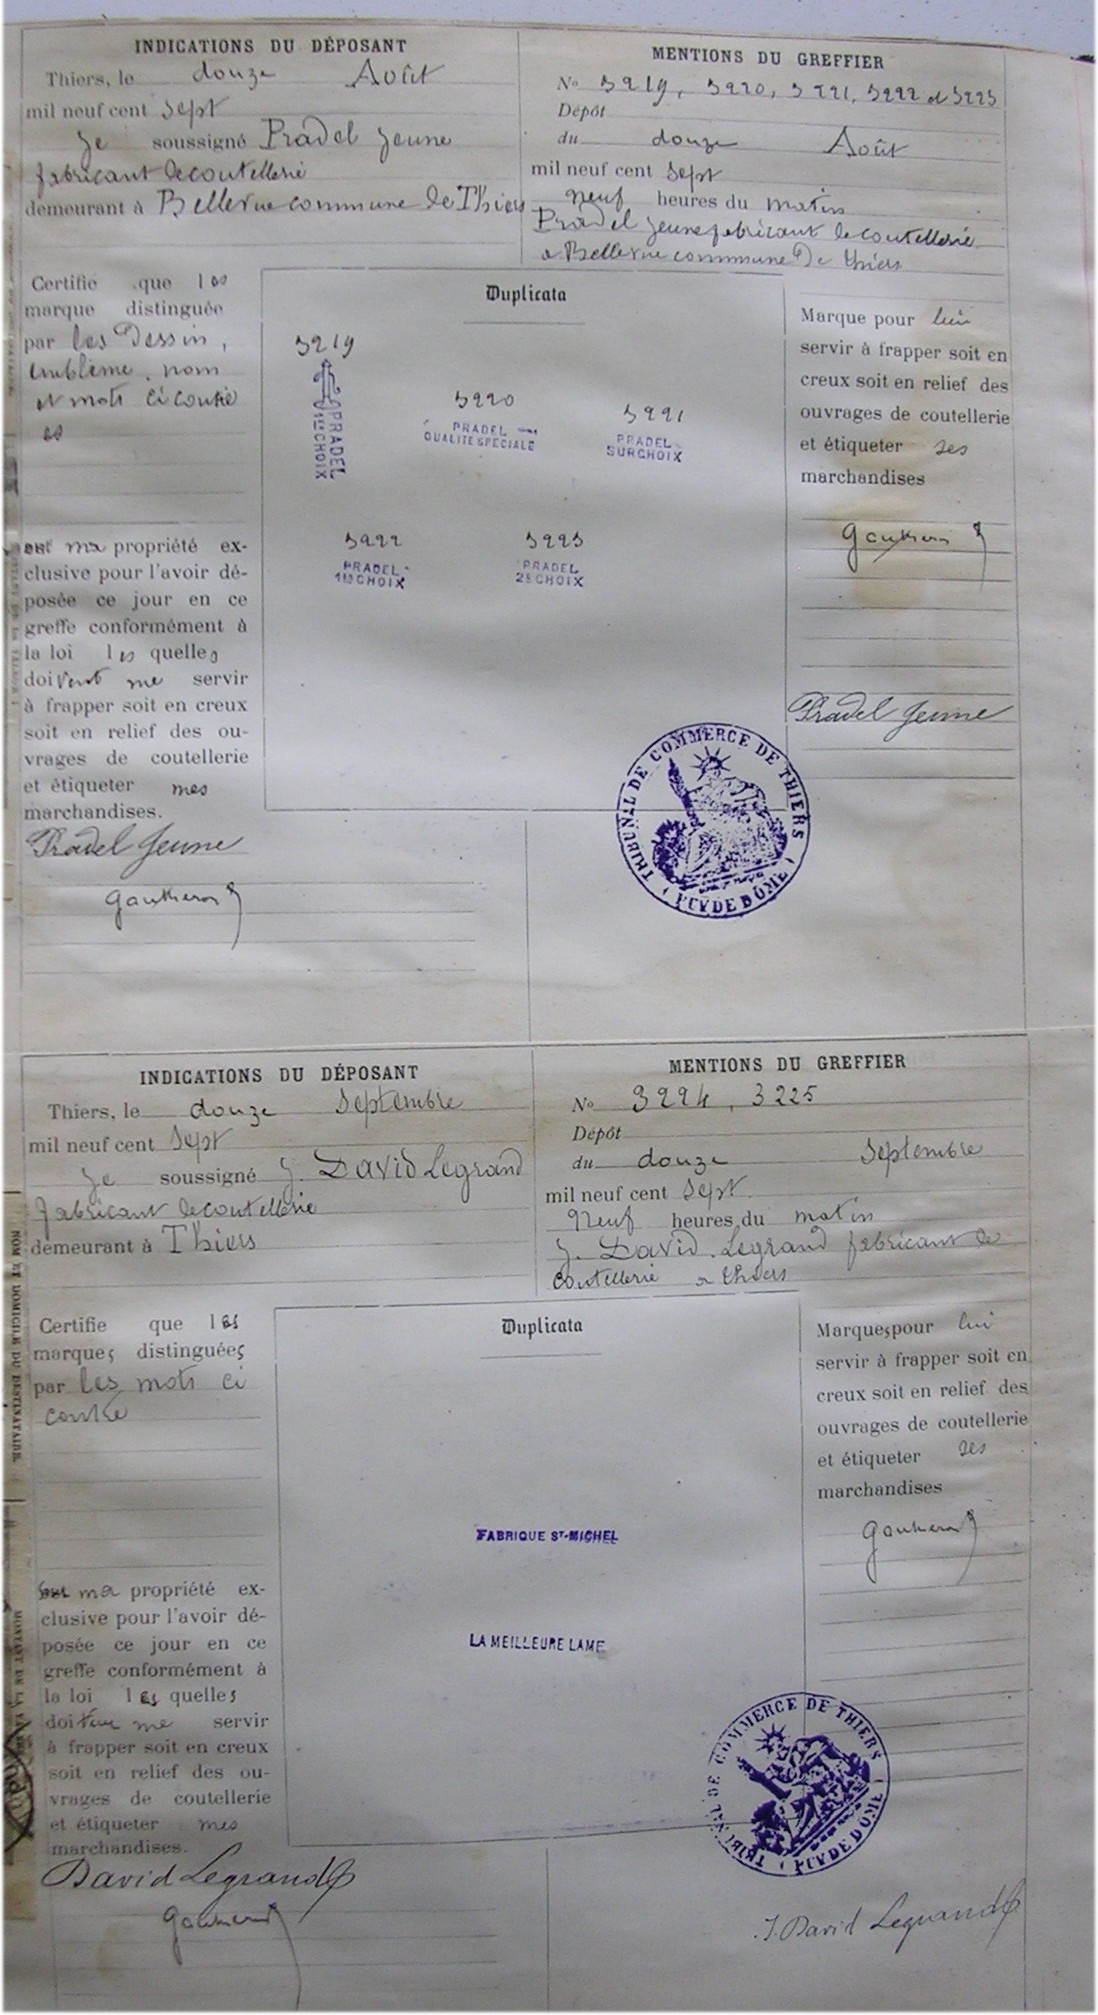 INDICATIONS DU DÉPOSANT
Thiers, le douze Août
mil neuf cent sept
Je soussigné Pradel Jeune
fabricant de coutellerie
demeurant à Bellevue commune de Thiers
MENTIONS DU GREFFIER
No 3219, 3220, 3221, 3222 et 3223
Dépôt
du douze Août
mil neuf cent sept
neuf heures du matin
Pradel Jeune fabricant de coutellerie
a Bellevue commune De Thiers
Certifie que les
marque distinguée
par les Dessin,
emblème, nom
et mots ci contre
es
ma propriété ex-
clusive pour l'avoir dé-
posée ce jour en ce
greffe conformément à
la loi les quelles
doivent me servir
à frapper soit en creux
soit en relief des ou-
vrages de coutellerie
et étiqueter mes
marchandises.
Pradel Jeune
Gautheron
Duplicata
3219
PRADEL
1ER CHOIX
3220
PRADEL
QUALITE SPECIALE
3221
PRADEL
SURCHOIX
3222
PRADEL
1ER CHOIX
3223
PRADEL
2E CHOIX
Marque pour lui
servir à frapper soit en
creux soit en relief des
ouvrages de coutellerie
et étiqueter ses
marchandises
Gautheron
Pradel Jeune
TRIBUNAL DE COMMERCE DE THIERS
(PUY DE DÔME)
INDICATIONS DU DÉPOSANT
Thiers, le douze Septembre
mil neuf cent sept
Je soussigné J. David Legrand
fabricant de coutellerie
demeurant à Thiers
MENTIONS DU GREFFIER
No 3224, 3225
Dépôt
du douze Septembre
mil neuf cent sept
neuf heures du matin
J. David Legrand fabricant de
coutellerie a Thiers
Certifie que les
marques distinguées
par les mots ci
contre
ma propriété ex-
clusive pour l'avoir dé-
posée ce jour en ce
greffe conformément à
la loi les quelles
me servir
à frapper soit en creux
soit en relief des ou-
vrages de coutellerie
et étiqueter mes
marchandises.
David Legrand
Gautheron
Duplicata
FABRIQUE ST-MICHEL
LA MEILLEURE LAME
Marques pour lui
servir à frapper soit en
creux soit en relief des
ouvrages de coutellerie
et étiqueter ses
marchandises
Gautheron
TRIBUNAL DE COMMERCE DE THIERS
(PUY DE DÔME)
J. David Legrand
NOM ET DOMICILE DU DESTINATAIRE.